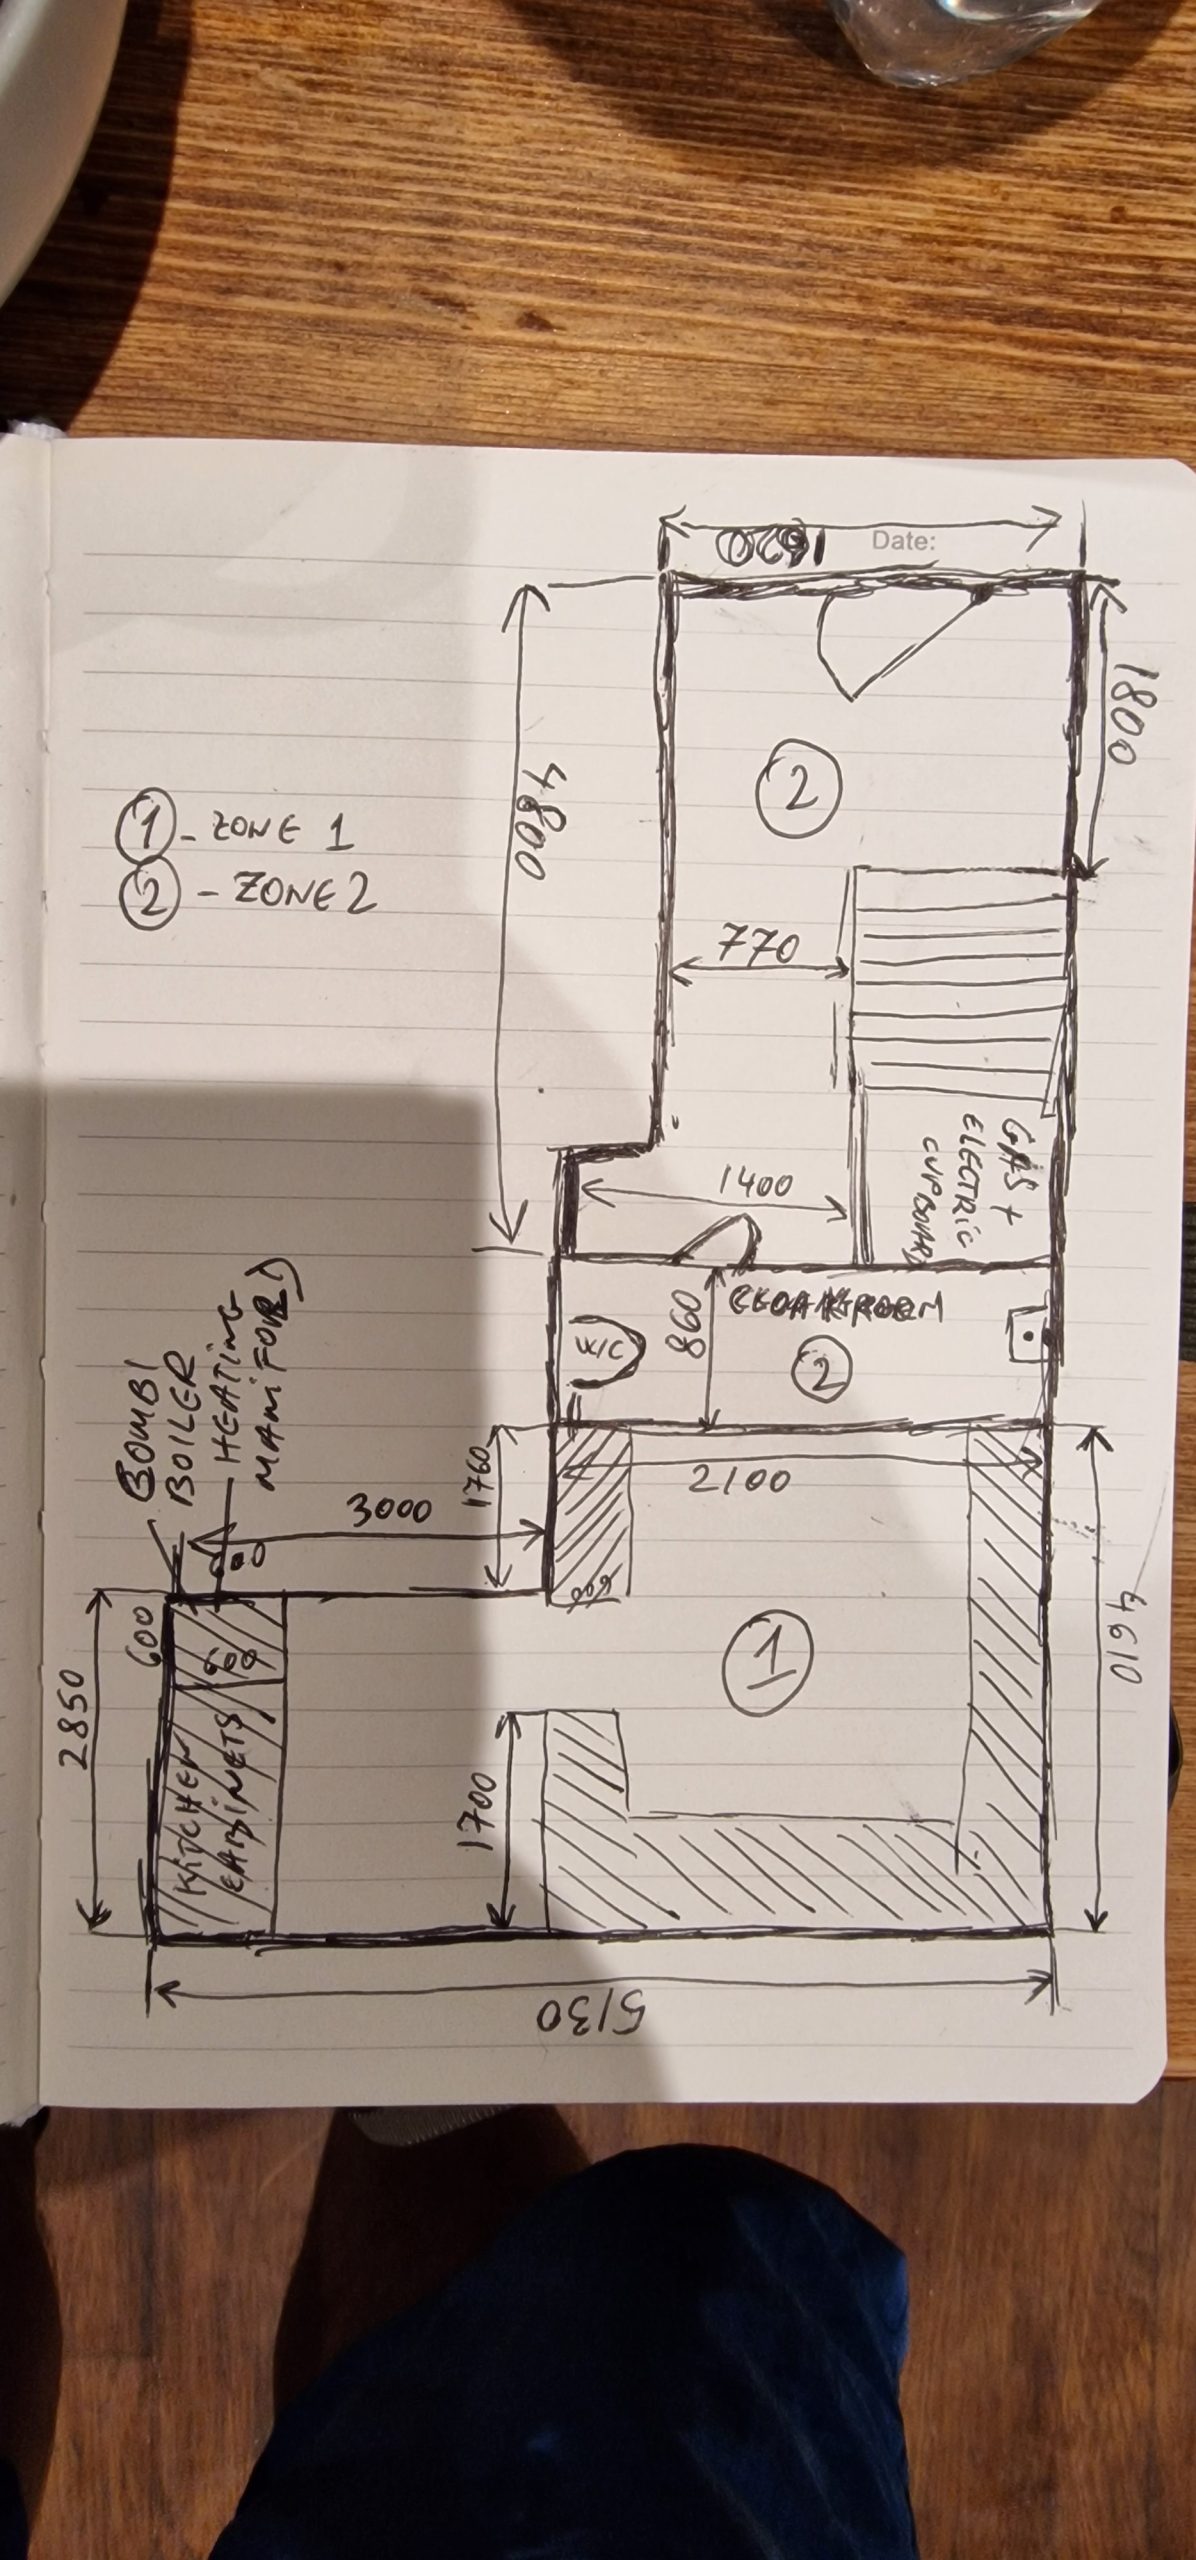 Date:
1620
1800
4800
2
① - ZONE 1
② - ZONE 2
770
GAS +
ELECTRIC
CUPBOARD
1400
CLOAKROOM
860
W/C
2
COMBI
BOILER
HEATING
MANIFOLD
1760
2100
3000
600
4610
600
1
2850
KITCHEN
CABINETS
1700
5130